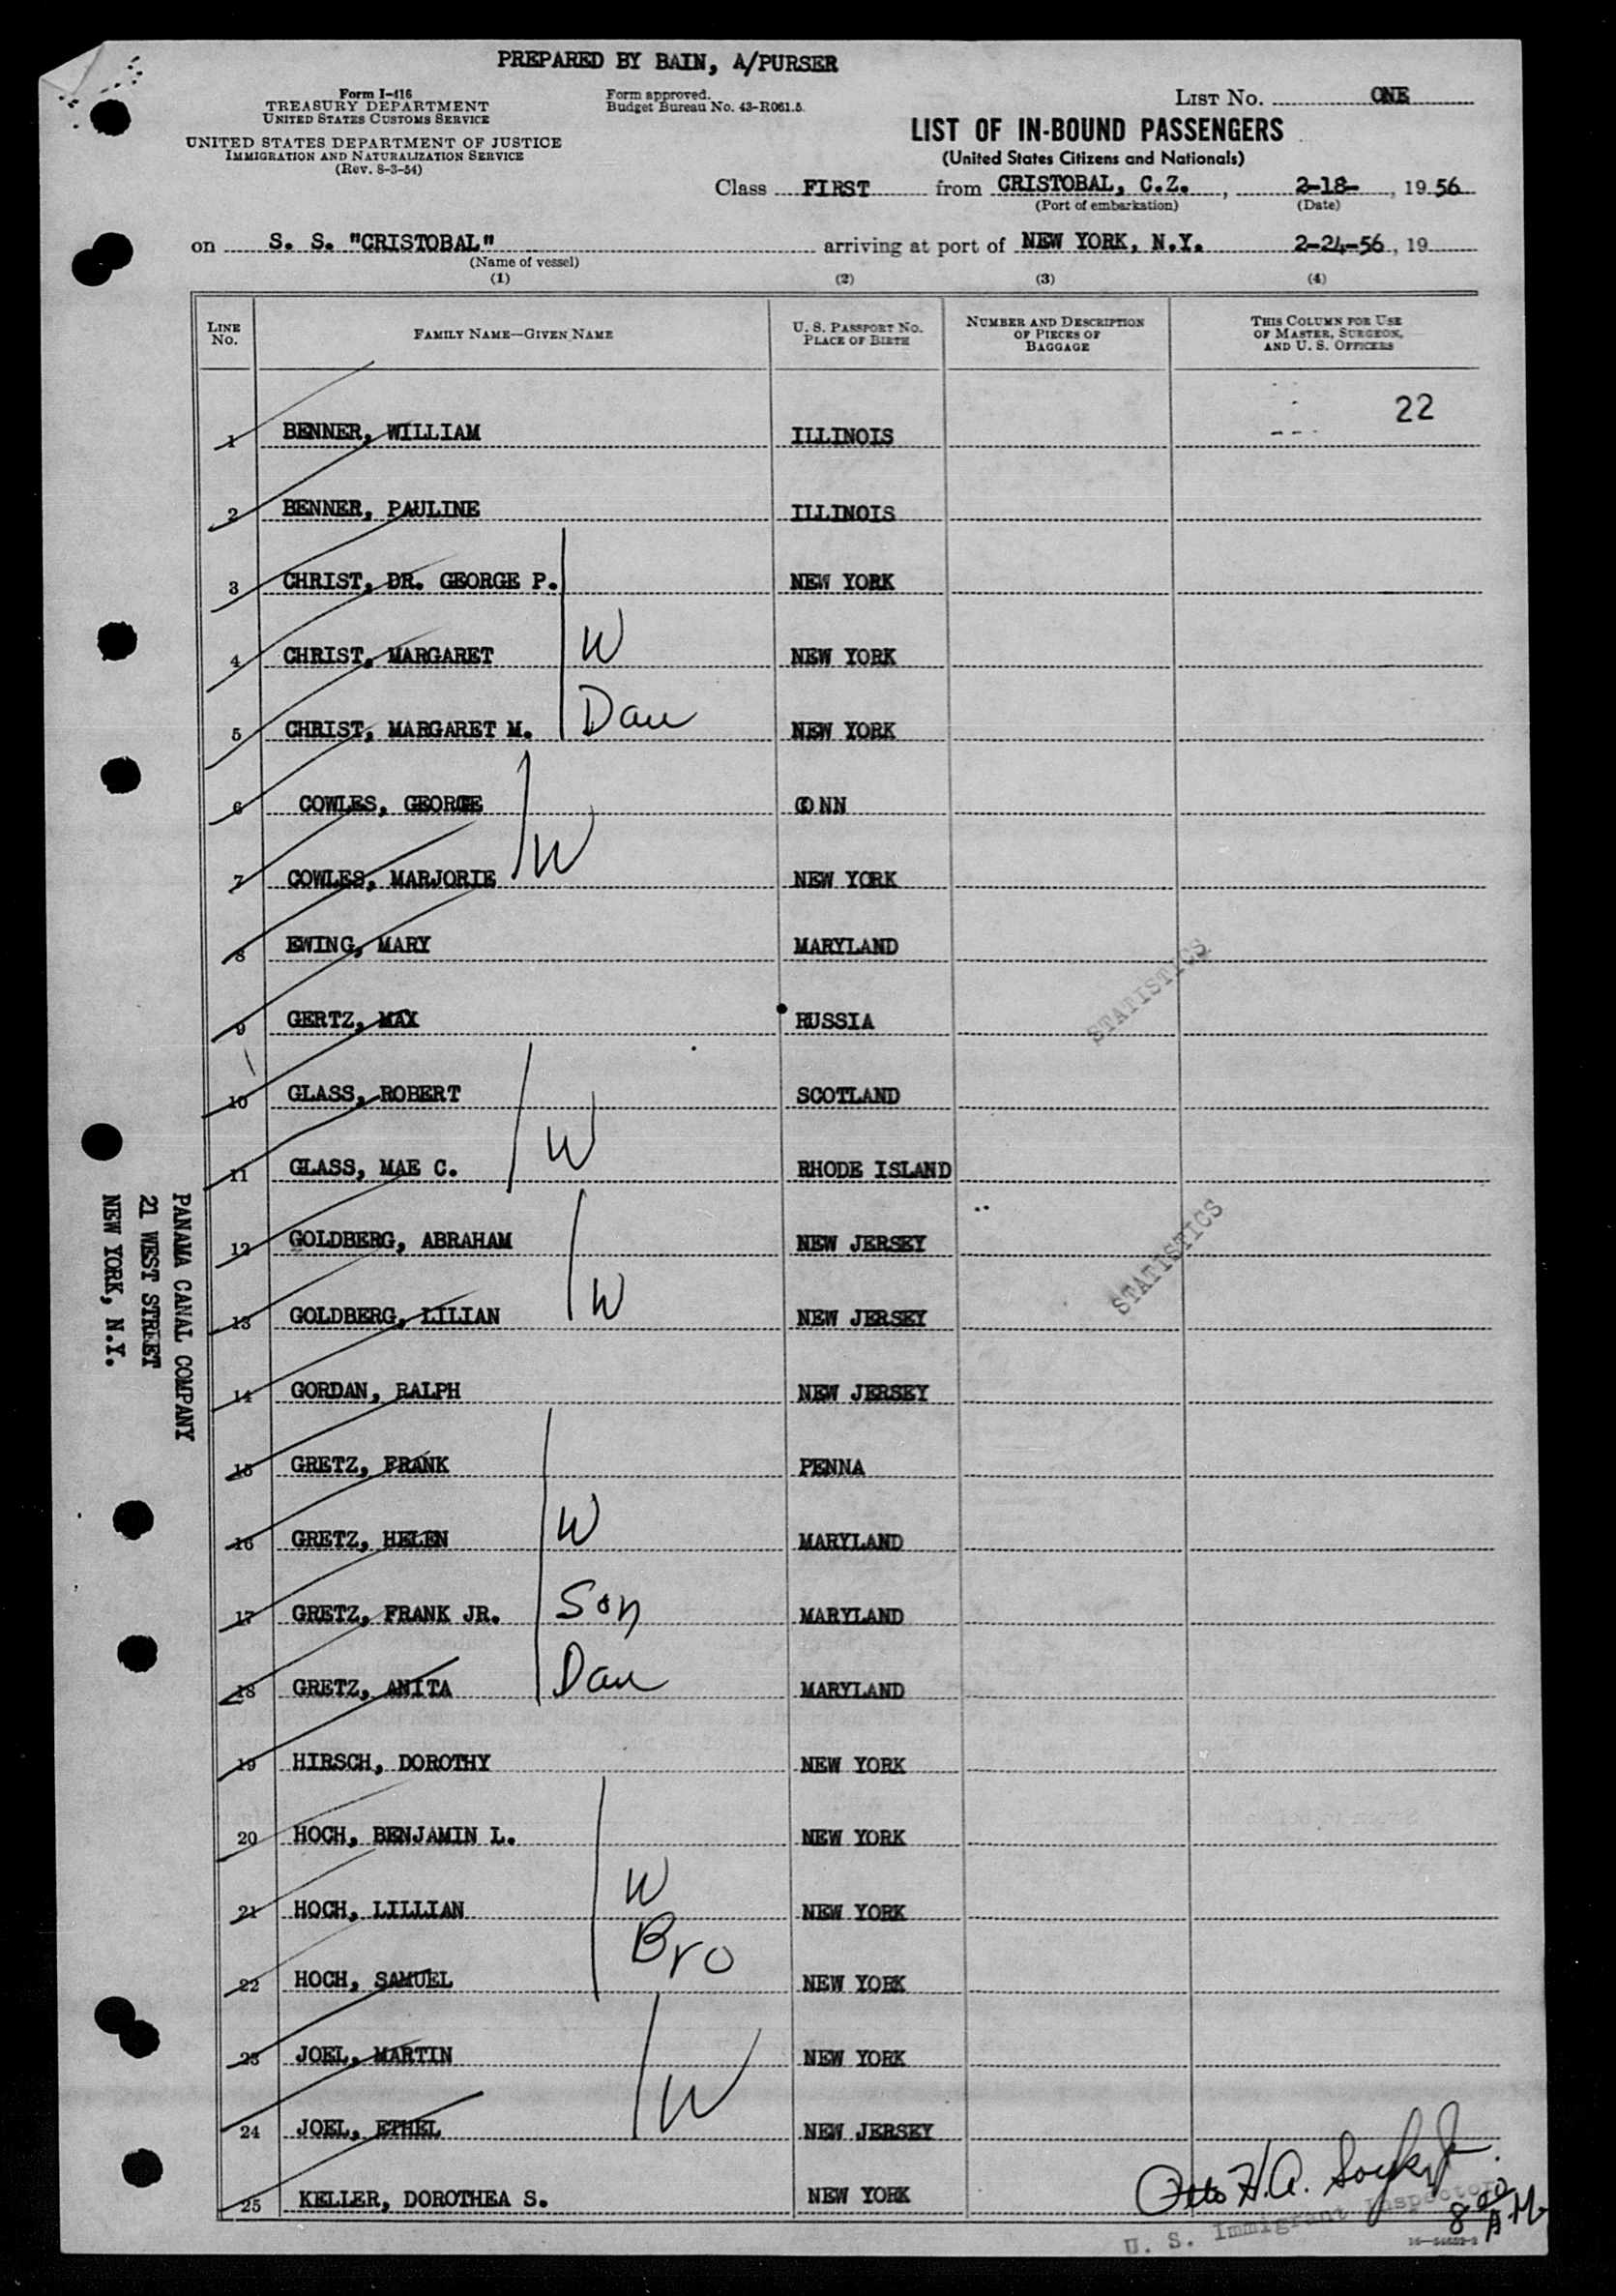 PREPARED BY BAIN, A/PURSER
Form I-416
TREASURY DEPARTMENT
UNITED STATES CUSTOMS SERVICE
UNITED STATES DEPARTMENT OF JUSTICE
IMMIGRATION AND NATURALIZATION SERVICE
(Rev. 8-3-54)
Form approved.
Budget Bureau No. 43-R061.5.
LIST NO. ONE
LIST OF IN-BOUND PASSENGERS
(United States Citizens and Nationals)
Class FIRST from CRISTOBAL, C.Z., 2-18-, 1956
(Port of embarkation) (Date)
on S. S. "CRISTOBAL" arriving at port of NEW YORK, N.Y. 2-24-56, 19
(Name of vessel)
(1) (2) (3) (4)
LINE NO. FAMILY NAME—GIVEN NAME U. S. PASSPORT NO. PLACE OF BIRTH NUMBER AND DESCRIPTION OF PIECES OF BAGGAGE THIS COLUMN FOR USE OF MASTER, SURGEON, AND U. S. OFFICERS
22
1 BENNER, WILLIAM ILLINOIS
2 BENNER, PAULINE ILLINOIS
3 CHRIST, DR. GEORGE P. NEW YORK
4 CHRIST, MARGARET W NEW YORK
5 CHRIST, MARGARET M. Dau NEW YORK
6 COWLES, GEORGE CONN
7 COWLES, MARJORIE W NEW YORK
8 EWING, MARY MARYLAND
9 GERTZ, MAX RUSSIA
STATISTICS
10 GLASS, ROBERT SCOTLAND
11 GLASS, MAE C. W RHODE ISLAND
12 GOLDBERG, ABRAHAM NEW JERSEY
STATISTICS
13 GOLDBERG, LILIAN W NEW JERSEY
14 GORDAN, RALPH NEW JERSEY
15 GRETZ, FRANK PENNA
16 GRETZ, HELEN W MARYLAND
17 GRETZ, FRANK JR. Son MARYLAND
18 GRETZ, ANITA Dau MARYLAND
19 HIRSCH, DOROTHY NEW YORK
20 HOCH, BENJAMIN L. NEW YORK
21 HOCH, LILLIAN W NEW YORK
22 HOCH, SAMUEL Bro NEW YORK
23 JOEL, MARTIN NEW YORK
24 JOEL, ETHEL W NEW JERSEY
25 KELLER, DOROTHEA S. NEW YORK
Otto H.A.
U. S. Immigrant Inspector
8 00 A M
PANAMA CANAL COMPANY
21 WEST STREET
NEW YORK, N.Y.